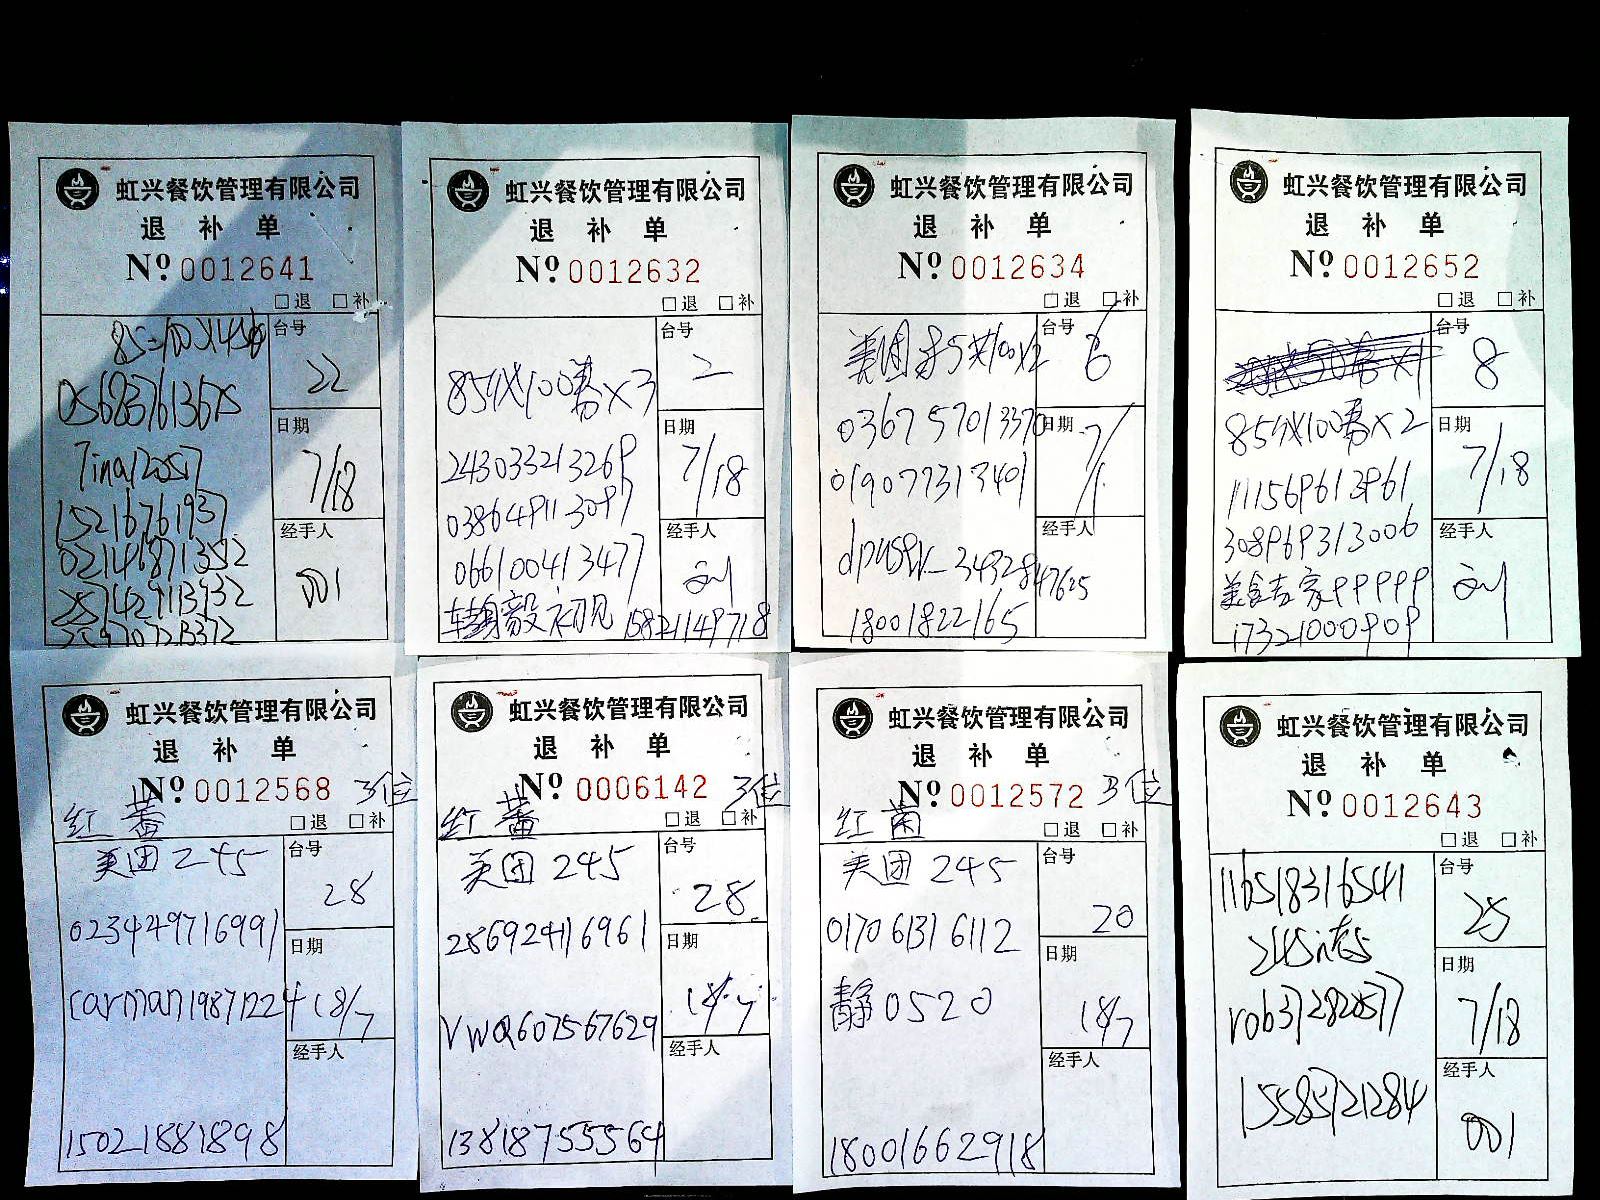 虹兴餐饮管理有限公司
退 补 单
Nº 0012641
□退 □补
85=100X4张
台号
22
056837613675
日期
7/18
Tina12057
15216761937
经手人
021468713532
001
257429113932
虹兴餐饮管理有限公司
退 补 单
Nº 0012632
□退 □补
台号
2
85代100券X3
日期
7/18
243033213269
038649113097
经手人
066100413477
刘
初见 15821149718
虹兴餐饮管理有限公司
退 补 单
Nº 0012634
□退 □补
美团85代100X2
台号
6
036757013370
日期
7/1
019077313401
经手人
dpuser_34932847625
18001822165
虹兴餐饮管理有限公司
退 补 单
Nº 0012652
□退 □补
台号
8
85代100券X2
日期
7/18
111569613961
308969313006
经手人
刘
美食吉家99999
17321000909
虹兴餐饮管理有限公司
退 补 单
Nº 0012568 3位
红蕃
□退 □补
美团245
台号
28
023442971699
日期
18/7
carman19871224
经手人
15021881898
虹兴餐饮管理有限公司
退 补 单
Nº 0006142 3位
红蕃
□退 □补
美团245
台号
28
286924116961
日期
18/7
VWQ607567629
经手人
13818755564
虹兴餐饮管理有限公司
退 补 单
Nº 0012572 3位
红茵
□退 □补
美团245
台号
20
017061316112
日期
18/7
静0520
经手人
18001662918
虹兴餐饮管理有限公司
退 补 单
Nº 0012643
□退 □补
116518316541
台号
25
245
日期
7/18
rob372820577
经手人
001
15585721284